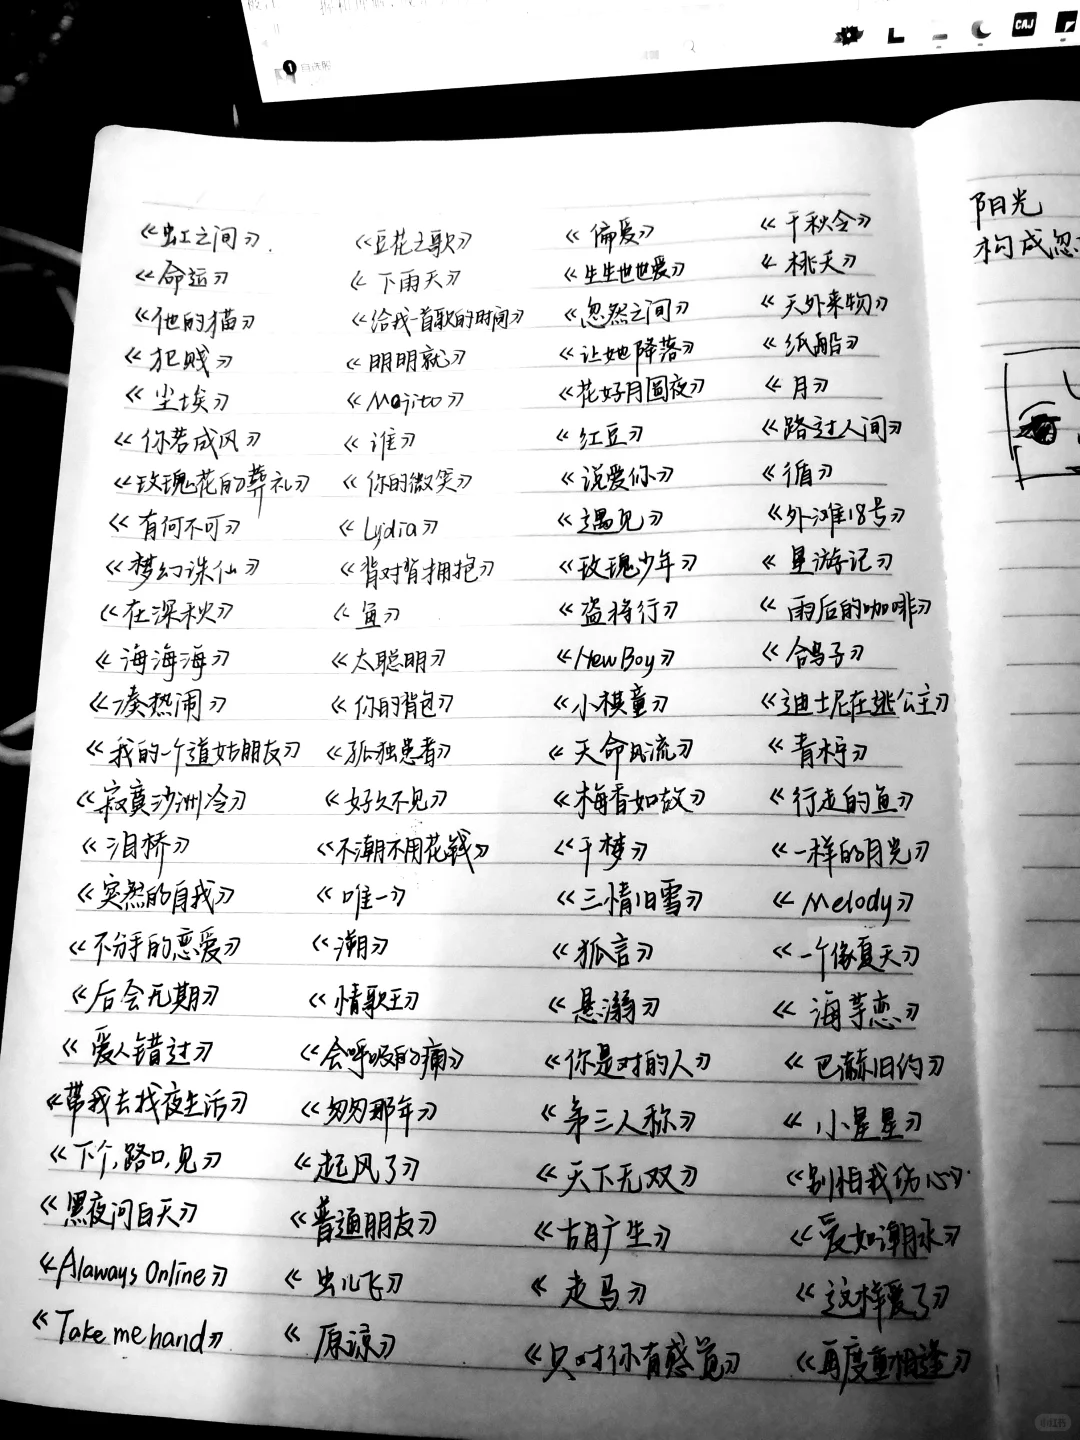 CAJ
《虹之间》 《豆花之歌》 《偏爱》 《千秋令》
《命运》 《下雨天》 《生生世世爱》 《桃夭》
《他的猫》 《给我一首歌的时间》 《忽然之间》 《天外来物》
《犯贱》 《明明就》 《让她降落》 《纸船》
《尘埃》 《Mojito》 《花好月圆夜》 《月》
《你若成风》 《谁》 《红豆》 《路过人间》
《玫瑰花的葬礼》 《你的微笑》 《说爱你》 《循》
《有何不可》 《Lydia》 《遇见》 《外滩18号》
《梦幻诛仙》 《背对背拥抱》 《玫瑰少年》 《星游记》
《在深秋》 《鱼》 《盗将行》 《雨后的咖啡》
《海海海》 《太聪明》 《New Boy》 《鸽子》
《凑热闹》 《你的背包》 《小棋童》 《迪士尼在逃公主》
《我的一个道姑朋友》 《孤独患者》 《天命风流》 《青柠》
《寂寞沙洲冷》 《好久不见》 《梅香如故》 《行走的鱼》
《泪桥》 《不潮不用花钱》 《千梦》 《一样的月光》
《突然的自我》 《唯一》 《三情旧雪》 《Melody》
《不分手的恋爱》 《潮》 《狐言》 《一个像夏天》
《后会无期》 《情歌王》 《悬溺》 《海芋恋》
《爱人错过》 《会呼吸的痛》 《你是对的人》 《巴赫旧约》
《带我去找夜生活》 《匆匆那年》 《第三人称》 《小星星》
《下个,路口,见》 《起风了》 《天下无双》 《别怕我伤心》
《黑夜问白天》 《普通朋友》 《胡广生》 《爱如潮水》
《Alaways Online》 《虫儿飞》 《走马》 《这样爱了》
《Take me hand》 《原谅》 《只对你有感觉》 《再度重相逢》
阳光
构成忽
小红书